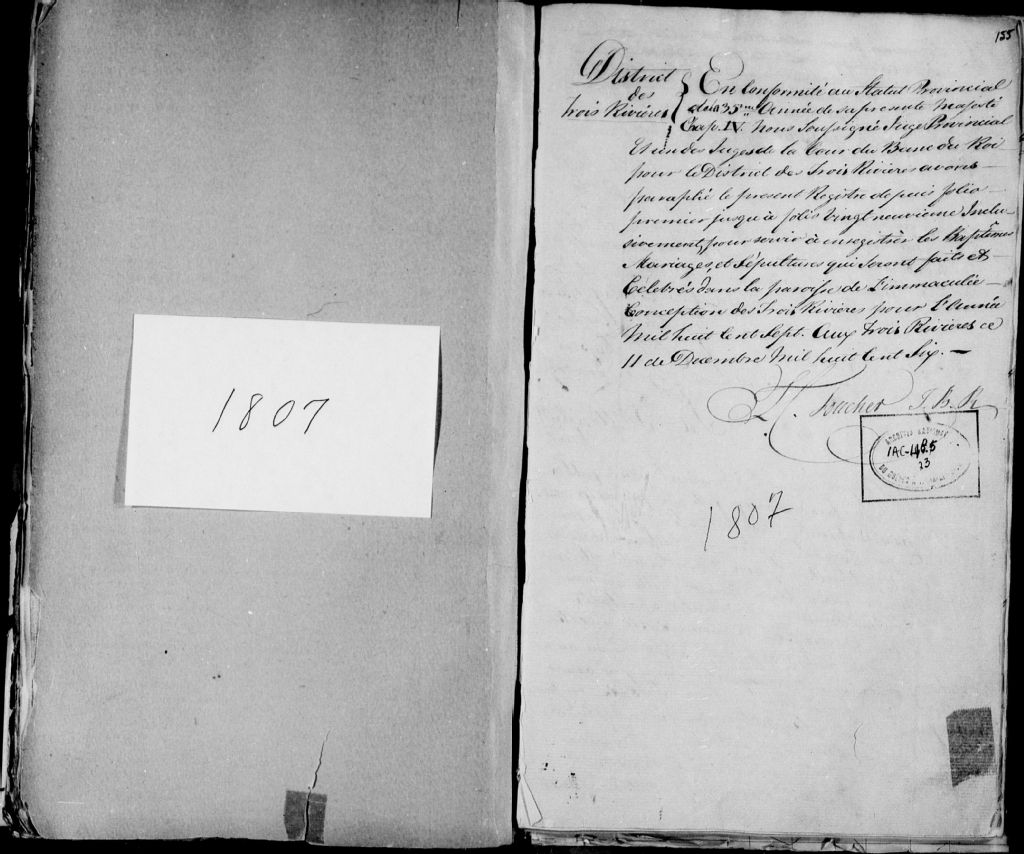 1807
155
District des trois Rivières
En Conformité au Statut Provincial
de la 35me Année de sa presente Majesté
Chap. IV. Nous Soussigné Juge Provincial
Et un des Juges de la Cour du Banc du Roi
pour le District des Trois Rivières avons
paraphé le present Registre depuis folio
premier jusqu'à folio vingt neuvieme Inclu-
sivement, pour servir à enregistrer les Baptêmes
Mariages, et Sépultures qui seront faits et
Célébrés dans la paroisse de L'immaculée
Conception des Trois Rivières pour L'Année
Mil huit Cent Sept. Aux trois Rivières ce
11 de Decembre Mil huit Cent Six. —
L. C. Foucher J. B. R
IAC-1485
23
1807